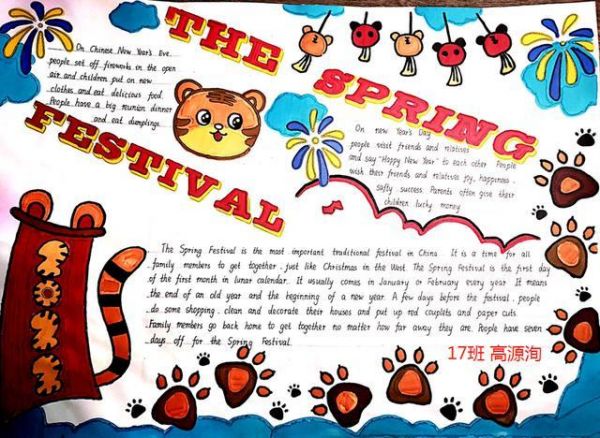 THE SPRING
FESTIVAL
On Chinese New Year's eve.
people set off fireworks in the open
air and children put on new
clothes and eat delicious food.
People have a big reunion dinner
and eat dumplings.
On new Year's Day
people visit friends and relatives
and say "Happy New Year" to each other. People
wish their friends and relatives joy, happiness.
safty success. Parents often give their
children lucky money
The Spring Festival is the most important traditional festival in China. It is a time for all
family members to get together. just like Christmas in the West. The Spring Festival is the first day
of the first month in lunar calendar. It usually comes in January or February every year. It means
the end of an old year and the beginning of a new year. A few days before the festival, people
do some shopping. clean and decorate their houses and put up red couplets and paper cuts.
Family members go back home to get together no matter how far away they are. People have seven
days off for the Spring Festival.
2022
17班 高源洵